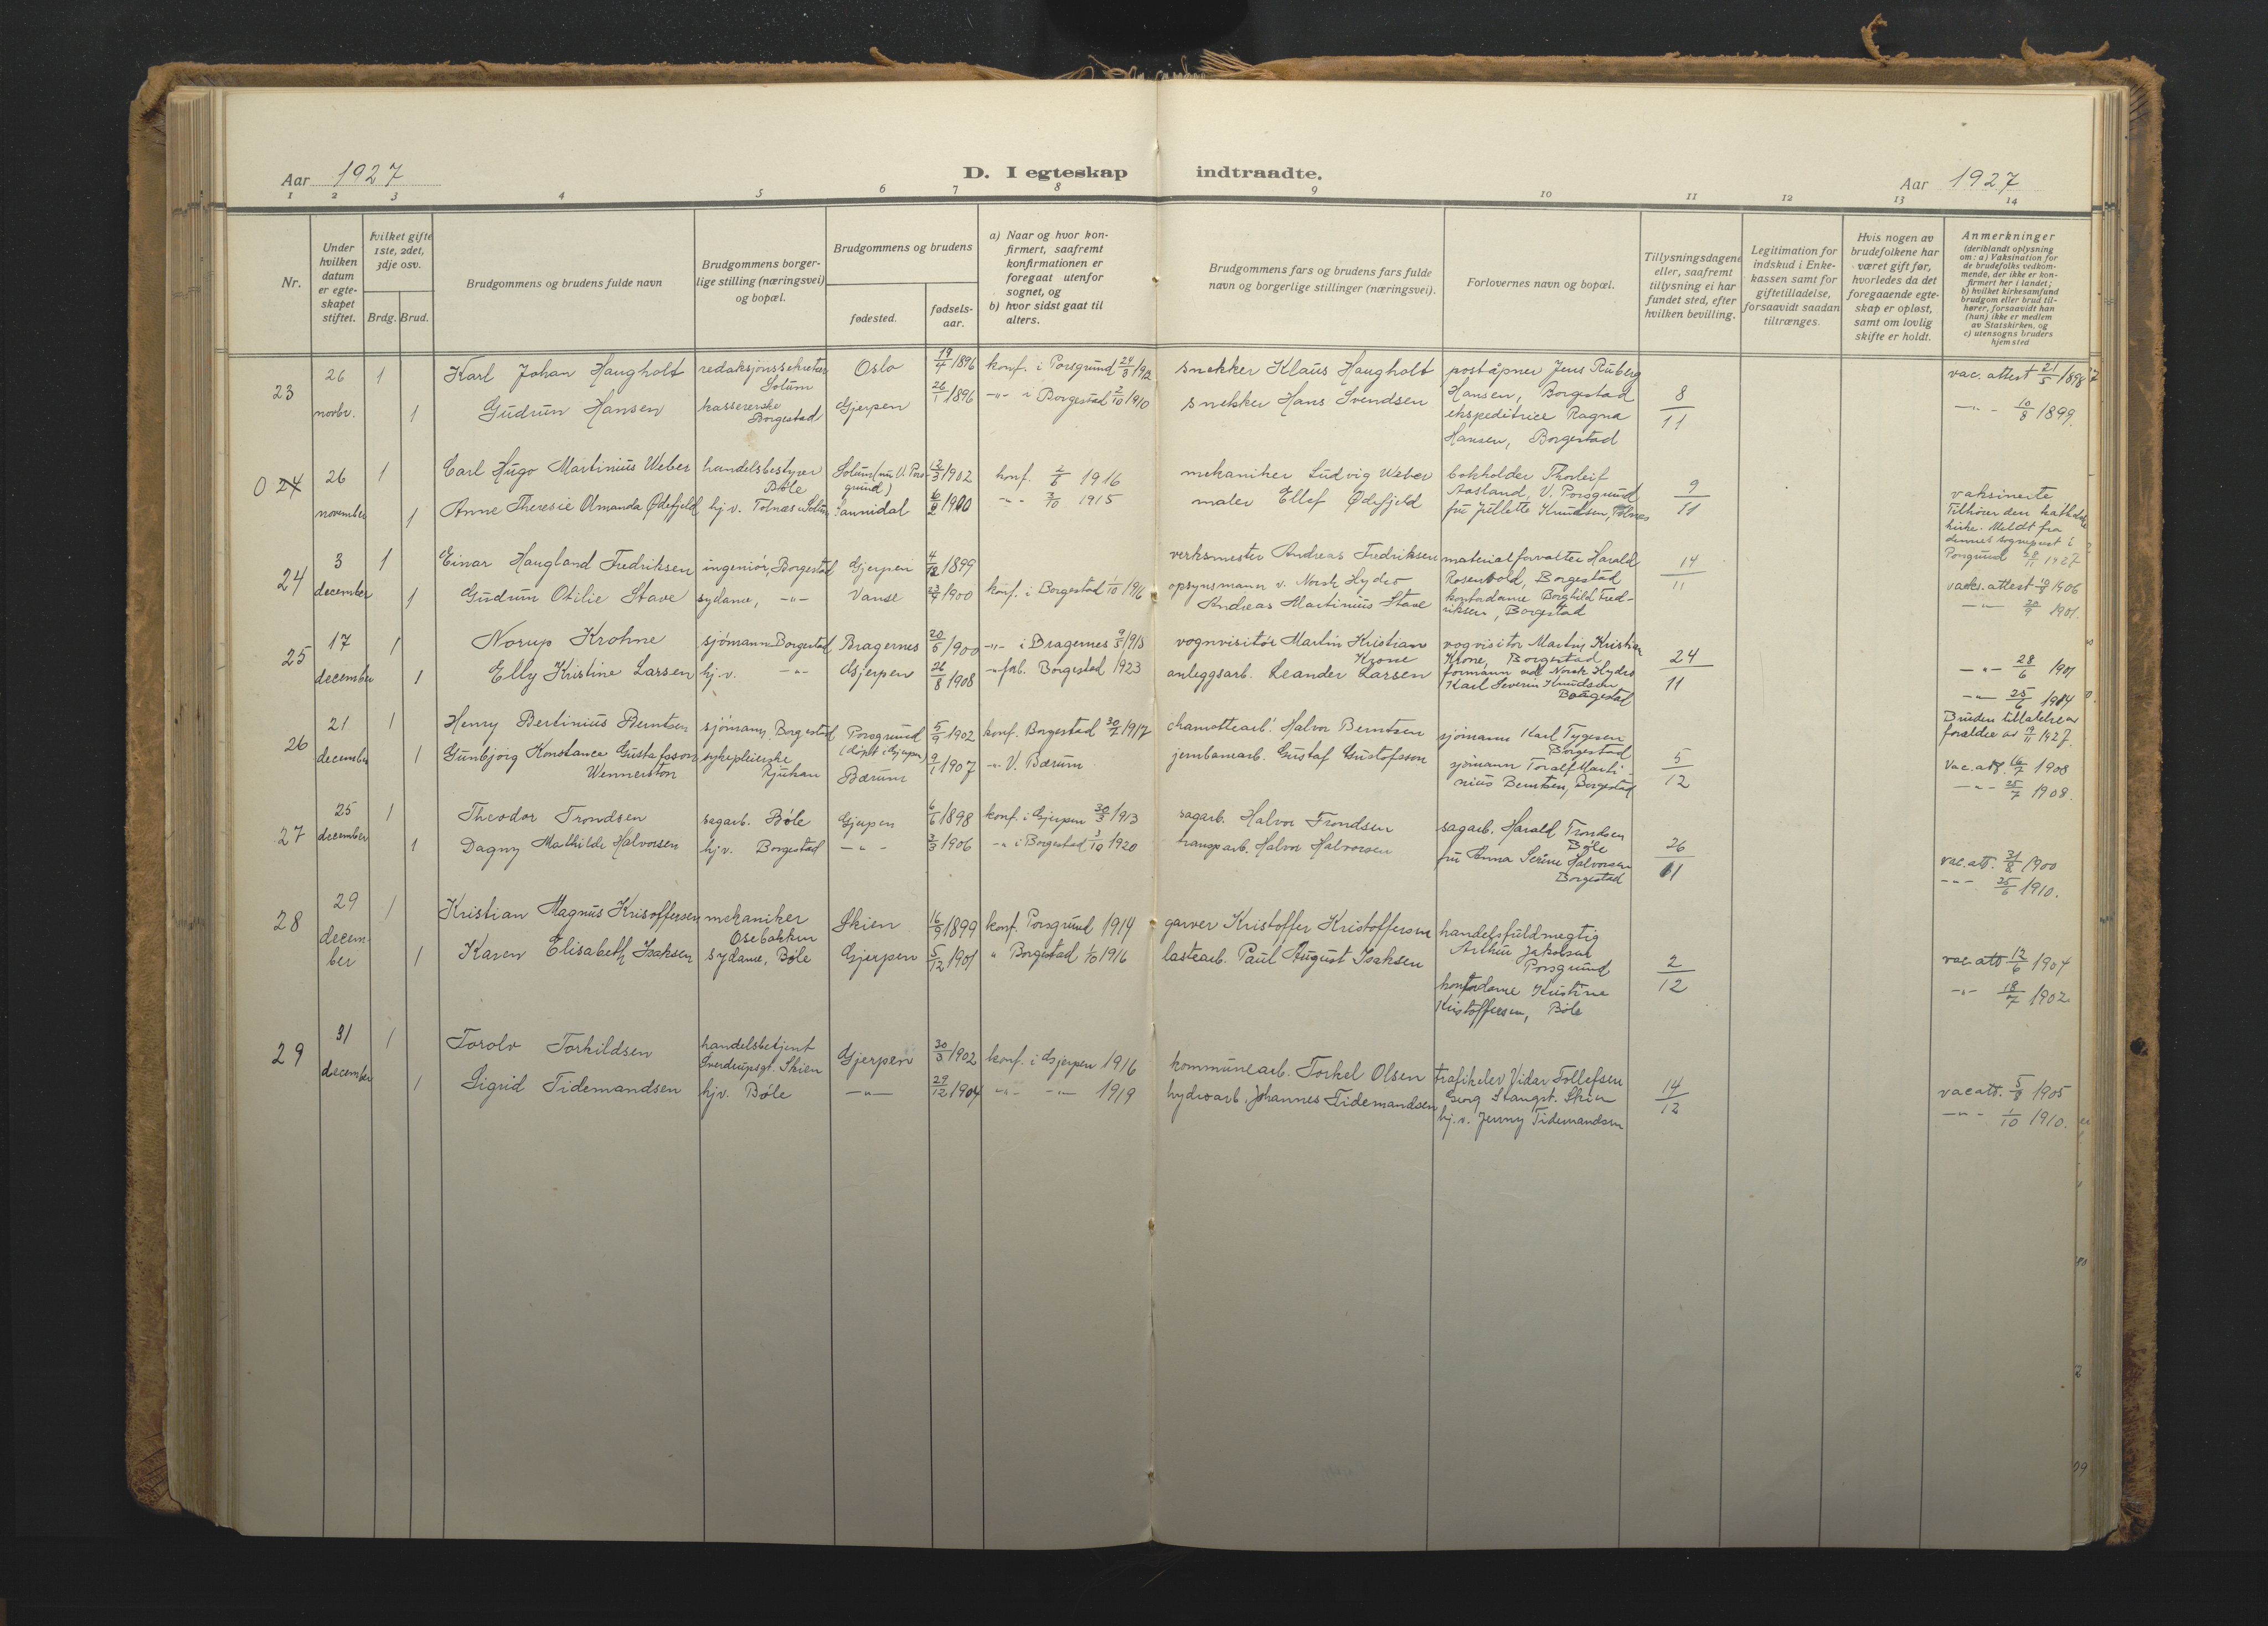 Aar 1927
D. I egteskap indtraadte.
Aar 1927
1 2 3 4 5 6 7 8 9 10 11 12 13 14
Nr.
Under hvilken datum er egteskapet stiftet.
hvilket gifte 1ste, 2det, 3dje osv.
Brdg. Brud.
Brudgommens og brudens fulde navn
Brudgommens borgerlige stilling (næringsvei) og bopæl.
Brudgommens og brudens
fødested.
fødselsaar.
a) Naar og hvor konfirmert, saafremt konfirmationen er foregaat utenfor sognet, og
b) hvor sidst gaat til alters.
Brudgommens fars og brudens fars fulde navn og borgerlige stillinger (næringsvei).
Forlovernes navn og bopæl.
Tillysningsdagene eller, saafremt tillysning ei har fundet sted, efter hvilken bevilling.
Legitimation for indskud i Enkekassen samt for giftetilladelse, forsaavidt saadan tiltrænges.
Hvis nogen av brudefolkene har været gift før, hvorledes da det foregaaende egteskap er opløst, samt om lovlig skifte er holdt.
Anmerkninger
(deriblandt oplysning om: a) Vaksination for de brudefolks vedkommende, der ikke er konfirmert her i landet; b) hvilket kirkesamfund brudgom eller brud tilhører, forsaavidt han (hun) ikke er medlem av Statskirken, og c) utensogns bruders hjemsted
23 26 novbr. 1 Karl Johan Haugholt redaksjonssekretær Solum Oslo 19/4 1896 konf. i Porsgrund 24/3 1912 snekker Klaus Haugholt poståpner Jens Ruberg Hansen, Borgestad 8/11 vac. attest 21/5 1898
1 Gudrun Hansen kassererske Borgestad Gjerpen 26/1 1896 -"- i Borgestad 2/10 1910 snekker Hans Svendsen ekspeditrice Ragna Hansen, Borgestad -"- 10/8 1899.
0 24 26 november 1 Carl Hugo Martinius Weber handelsbestyrer Bøle Solum (nu V. Porsgrund) 12/3 1902 konf. 2/6 1916 mekaniker Ludvig Weber bokholder Thorleif Aasland, V. Porsgrund 9/11 vaksinerte
1 Anne Theresie Amanda Ødefjeld hj v. Tolnæs Solum Sannidal 1900 -"- 3/10 1915 maler Ellef Ødefjeld fru Jullette Knudsen, Tolnes Tilhører den katholske kirke. Meldt fra dennes sogneprest i Porsgrund 28/11 1927
24 3 december 1 Einar Haugland Fredriksen ingeniör, Borgestad Gjerpen 4/12 1899 verksmester Andreas Fredriksen materialforvalter Harald Rosenvold, Borgestad 14/11 vaks. attest 1906
1 Gudrun Otilie Stave sydame, -"- Vanse 1900 konf. i Borgestad 1/10 1916 opsynsmann v. Norsk Hydro Andreas Martinius Stave kontordame Borghild Fredriksen, Borgestad -"- 20/9 1901.
25 17 december 1 Norup Krohne sjömann Borgestad Bragernes 20/5 1900 -"- i Bragernes 9/5 1915 vognvisitör Martin Kristian Krone vogvisitör Martin Kristian Krone, Borgestad 24/11 -"- 28/6 1901
1 Elly Kristine Larsen hj. v. -"- Gjerpen 26/8 1908 -"- forb. Borgestad 1923 anleggsarb. Leander Larsen formann ved Norsk Hydro Karl Severin Knudsen Borgestad -"- 25/6 1914
26 21 december 1 Henry Bertinius Berntsen sjömann, Borgestad Porsgrund (döpt i Gjerpen) 5/9 1902 konf. Borgestad 30/7 1917 chamottearb. Halvor Berntsen sjömann Karl Tygesen Borgestad 5/12 Bruden tillatelse av foreldre av 19/11 1927.
1 Gunbjörg Konstance Gustafsson Wennerston sykepleierske Rjukan Bærum 9/1 1907 -"- V. Bærum jernbanearb. Gustaf Gustofsson sjömann Toralf Martinius Berntsen, Borgestad Vac. att. 16/7 1908 -"- 25/7 1908.
27 25 december 1 Theodor Trondsen sagarb. Bøle Gjerpen 6/6 1898 konf. i Gjerpen 30/3 1913 sagarb. Halvor Trondsen sagarb. Harald Trondsen Bøle 26/11 vac. att. 31/8 1900
1 Dagny Mathilde Halvorsen hj v. Borgestad -"- 3/3 1906 -"- i Borgestad 3/10 1920 transp arb. Halvor Halvorsen fru Anna Serine Halvorsen Borgestad -"- 25/6 1910.
28 29 december 1 Kristian Magnus Krisoffersen mekaniker Osebakken Skien 16/9 1899 konf. Porsgrund 1914 garver Kristoffer Kristoffersen handelsfuldmegtig Arthur Jakobsen Porsgrund 2/12 vac. att 12/6 1904
1 Karen Elisabeth Isaksen sydame, Bøle Gjerpen 5/12 1901 " Borgestad 1/10 1916 lastearb. Paul August Isaksen kontordame Kristine Kristoffersen, Bøle -"- 18/7 1902
29 31 december 1 Torolv Torkildsen handelsbetjent Sverdrupsgt. Skien Gjerpen 30/3 1902 konf. i Gjerpen 1916 kommunearb. Torkel Olsen trafikelev Vidar Tollefsen Georg Stangst. Skien 14/12 vac att. 5/8 1905
1 Sigrid Tidemandsen hj v. Bøle -"- 29/12 1904 -"- -"- 1919 hydroarb. Johannes Tidemandsen hj. v. Jenny Tidemandsen -"- 1/10 1910.